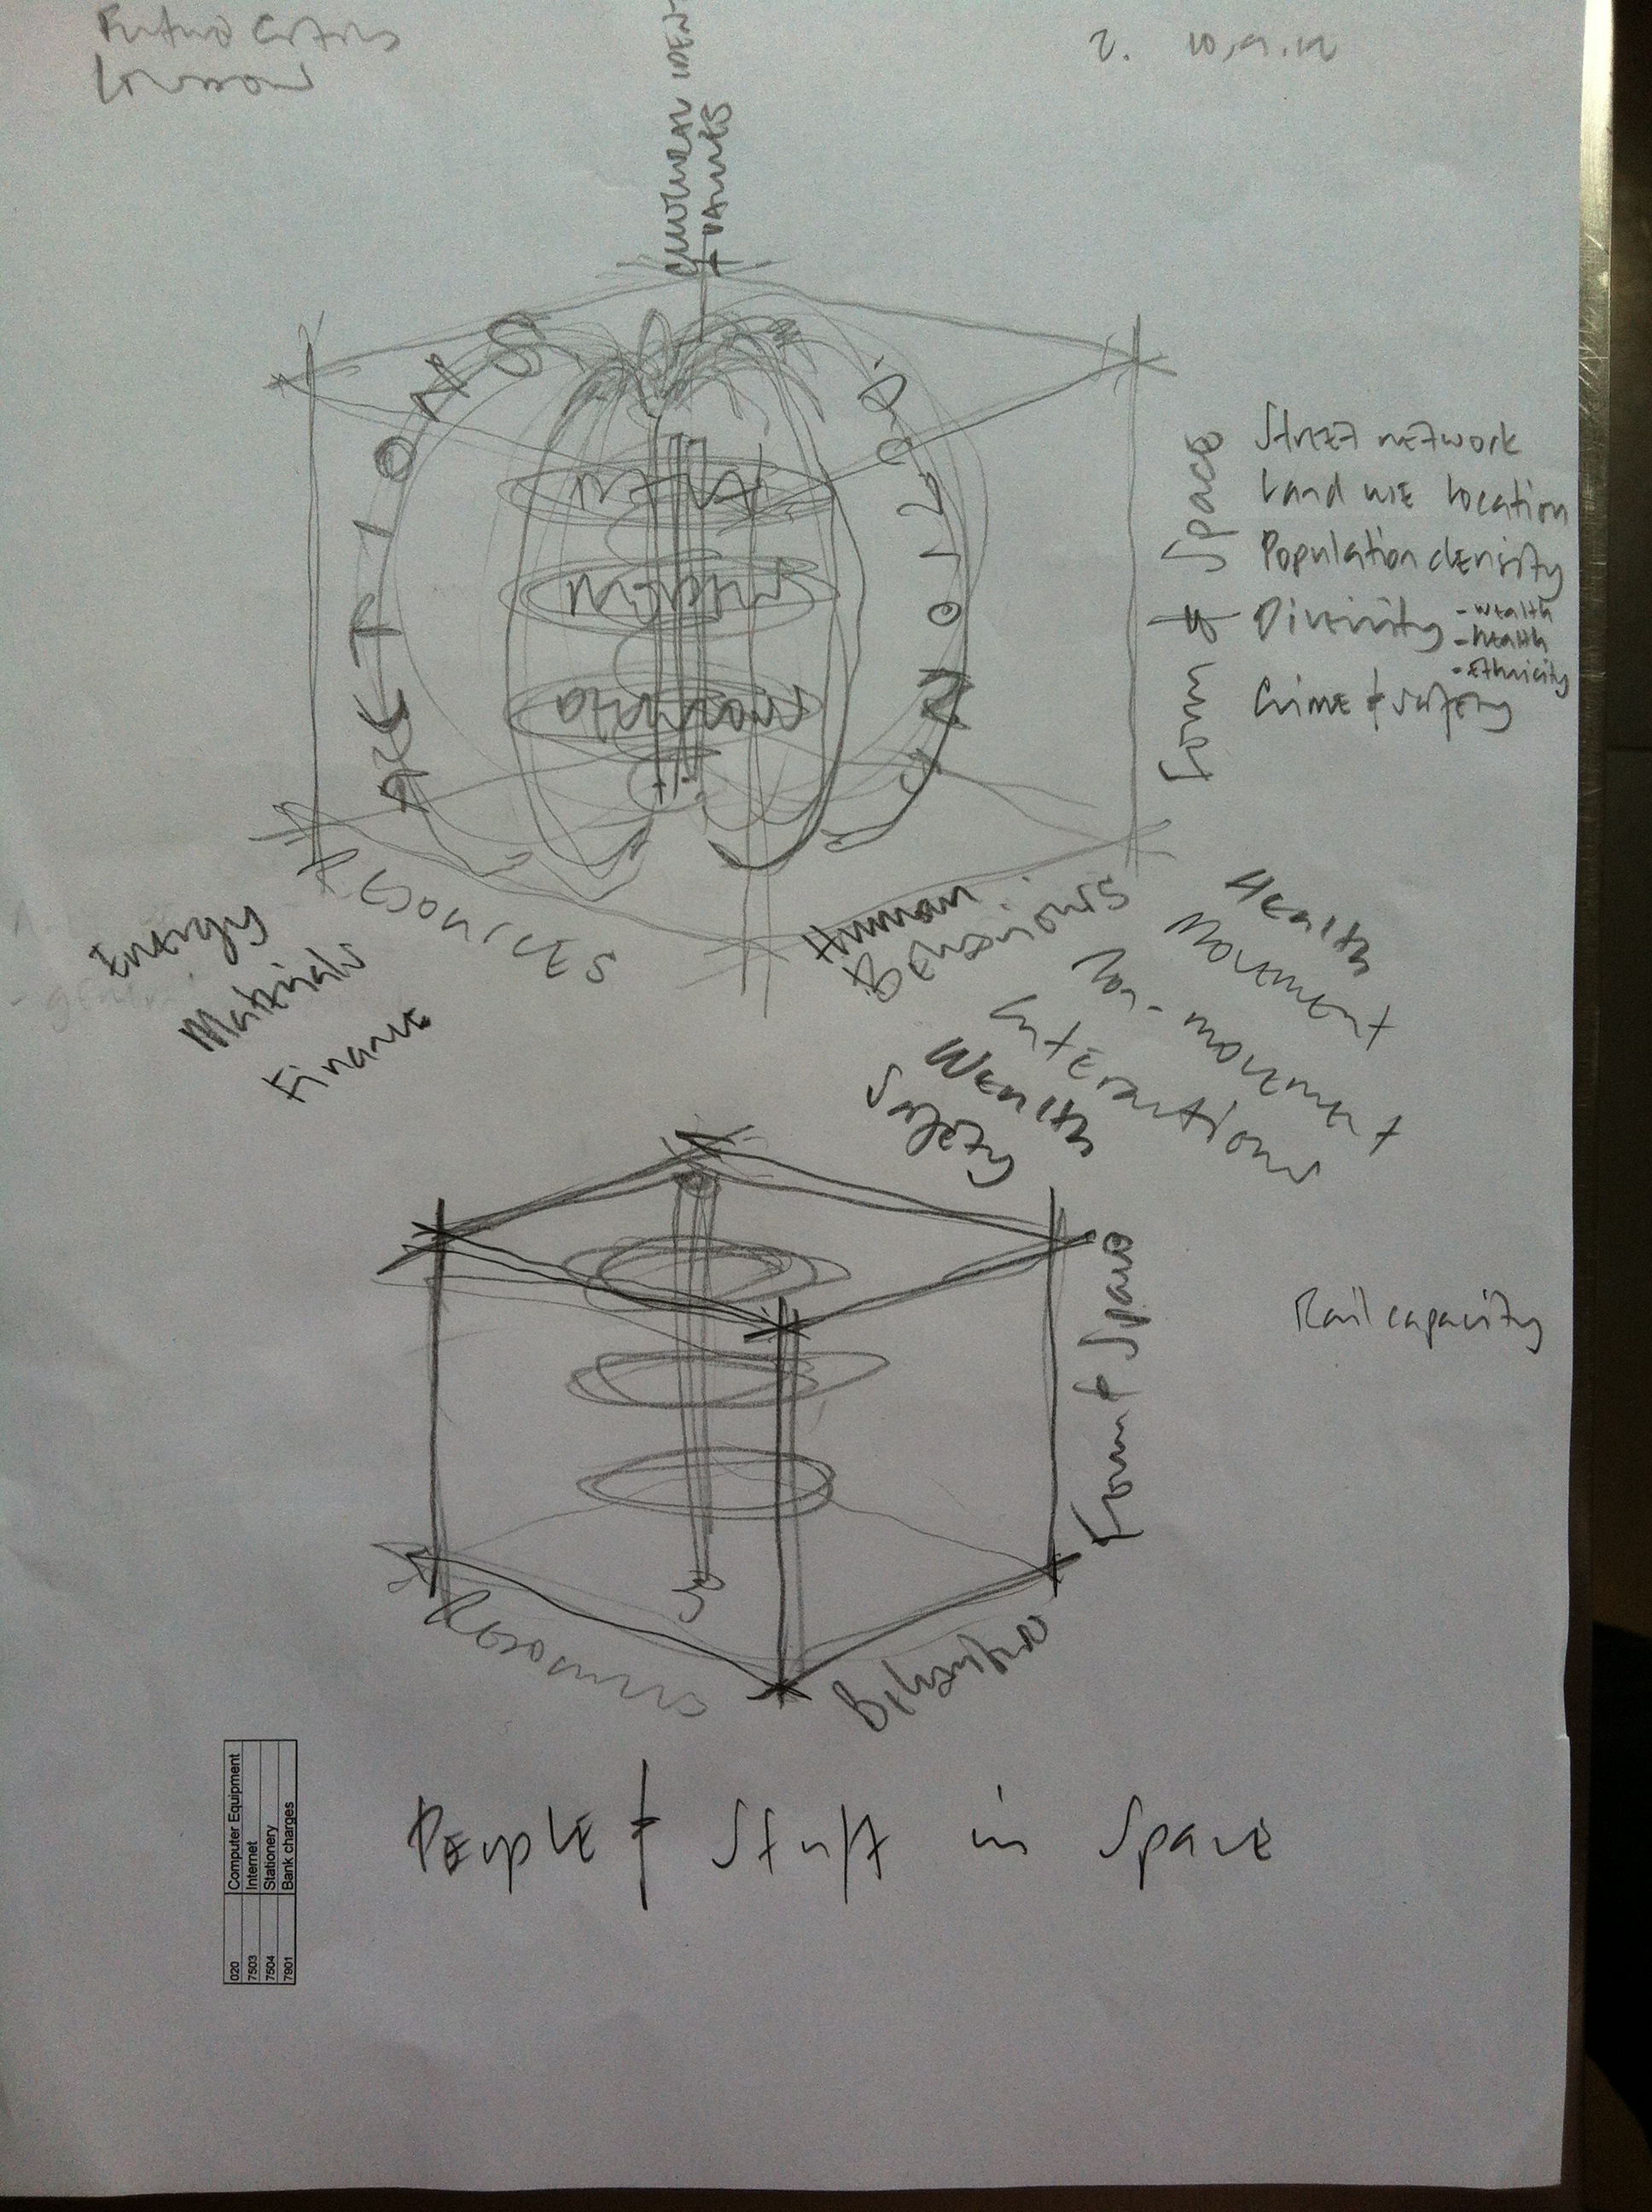 Future Cities
London
2. 10.9.12
CULTURAL IDEN
+ VALUES
ACTIONS
Form & Space
Street network
Land use location
Population density
Diversity - wealth
- health
- Ethnicity
Crime & safety
Resources
Energy
Materials
Finance
Human
Behaviours
Health
Movement
Non-movement
Interactions
Wealth
Safety
Form & Space
Rail capacity
Resources
Behaviour
People & Stuff in Space
020 Computer Equipment
7503 Internet
7504 Stationery
7901 Bank charges